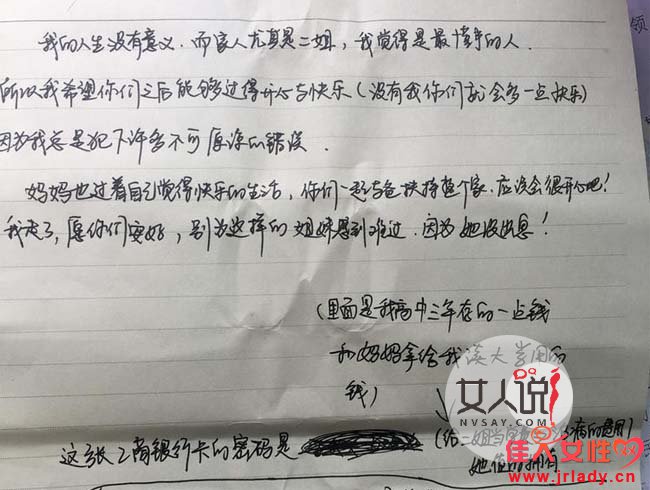 我的人生没有意义.而家人尤其是二姐，我觉得是最懂事的人.
所以我希望你们之后能够过得开心与快乐（没有我你们就会多一点快乐）
因为我总是犯下许多不可原谅的错误.
妈妈也过着自己觉得快乐的生活，你们一起与爸扶持整个家.应该会很开心吧！
我走了，愿你们安好，别为这样的姐妹感到难过.因为她没出息！
（里面是我高中三年存的一点钱
和妈妈拿给我读大学用的
钱）
这张工商银行卡的密码是
（给二姐当
病的费用）
她值得拥有
领
女人说
NVSAY.COM
佳人女性网
www.jrlady.cn